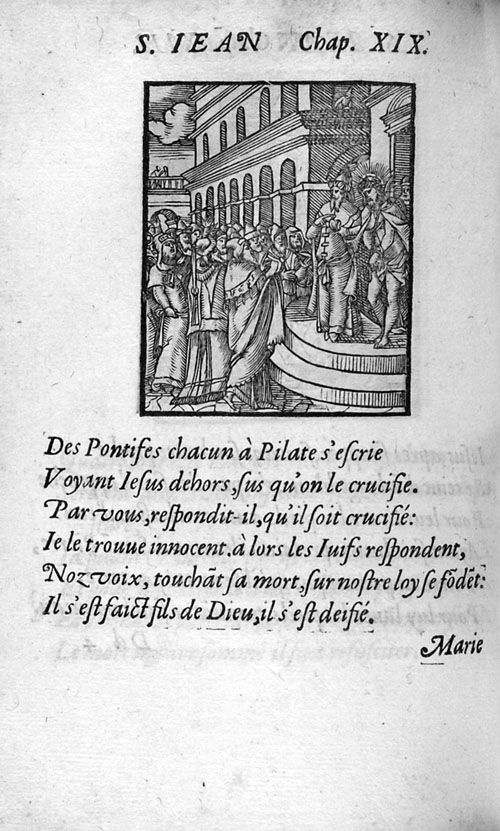 S. IEAN Chap. XIX.
Des Pontifes chacun à Pilate s'escrie
Voyant Iesus dehors, sus qu'on le crucifie.
Par vous, respondit-il, qu'il soit crucifié:
Ie le trouue innocent. à lors les Iuifs respondent,
Noz voix, touchāt sa mort, sur nostre loy se fōdēt:
Il s'est faict fils de Dieu, il s'est deifié.
Marie